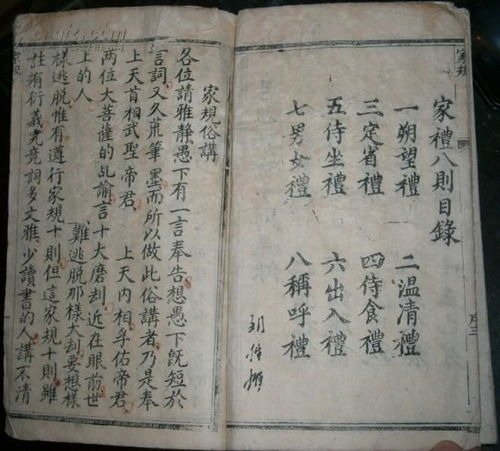 家規
家禮八則目錄
一朔望禮 二温清禮
三定省禮 四侍食禮
五侍坐禮 六出入禮
七男女禮 八稱呼禮
家規俗講
各位請雅静愚下有一言奉告想愚下既短於
言詞又久荒筆墨而所以做此俗講者乃是奉
上天首相武聖帝君 上天内相孚佑帝君
兩位大菩薩的乩諭言十大磨刼近在眼前世
上的人 難逃脱那樣大刼要想樣
樣逃脱惟有遵行家規十則但這家規十則雖
註有衍義究竟詞多文雅少讀書的人講不清